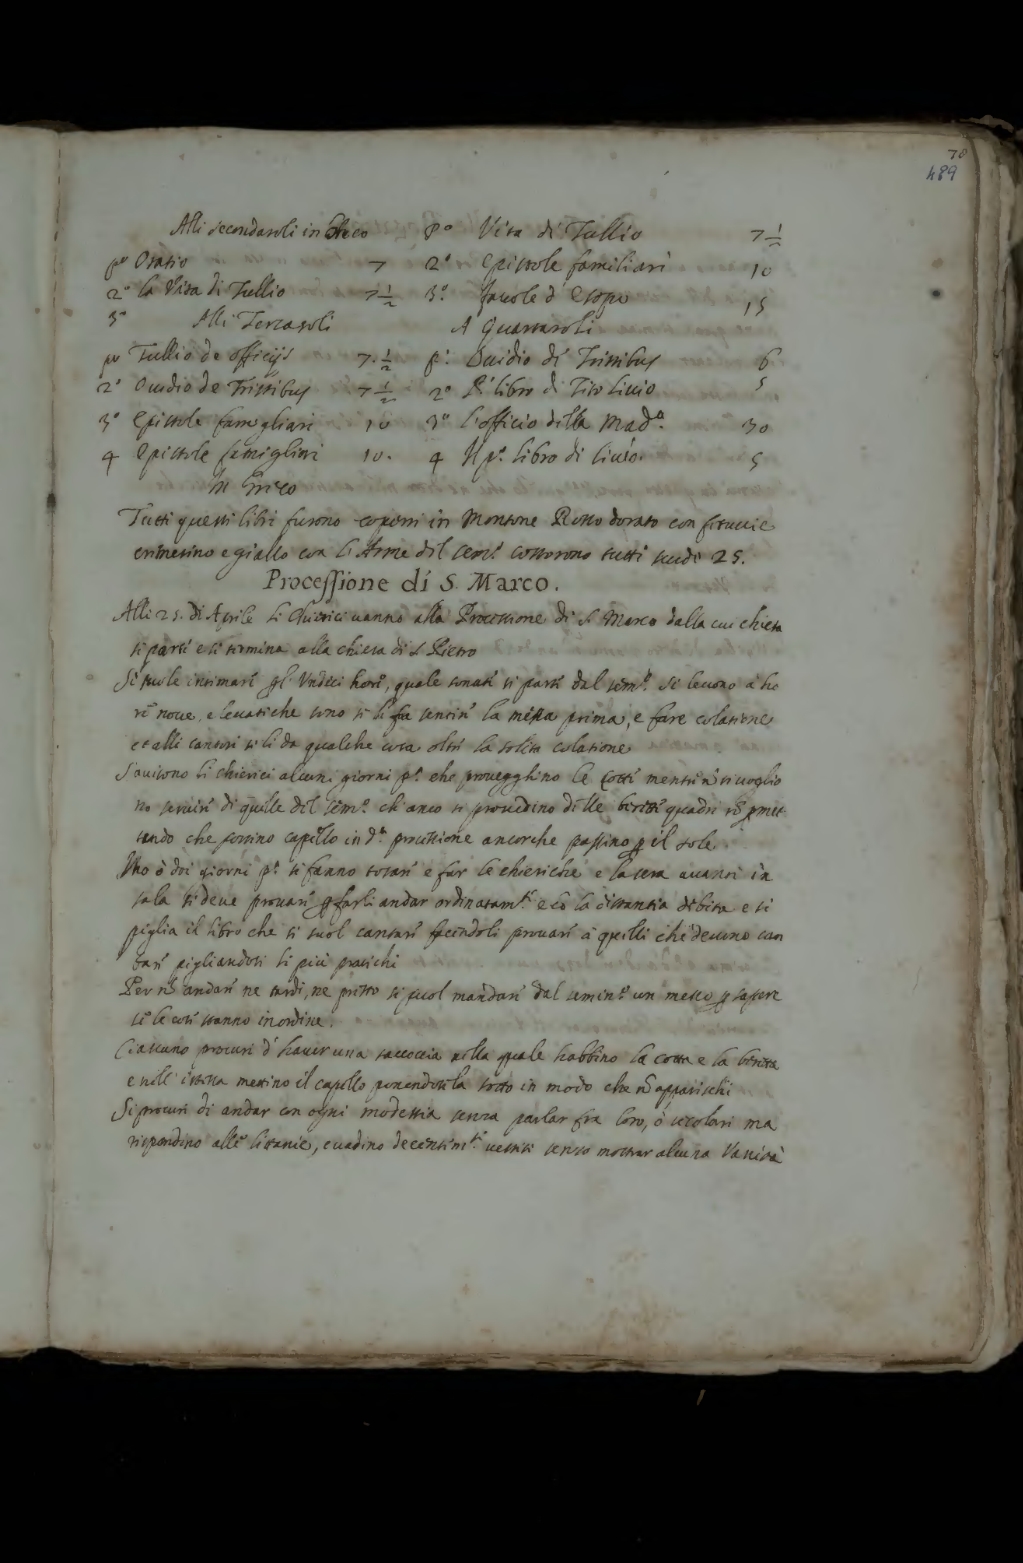 70
489
Alli secondaroli in Greco pº Vita di Tullio 7 1/2
pº Oratio 7 2º Epistole familiari 10
2º la Vita di Tullio 7 1/2 3º. favole d'Esopo 15
3º Alli Terzaroli A Quartaroli
pº Tullio de officijs 7. 1/2 pº. Ovidio di Tristibus 6
2º Ovidio de Tristibus 7 1/2 2º Pº libro di Tito Livio 5
3º Epistole famegliari 10 3º L'officio della Madª. 30
4 Epistole famigliari 10. 4 Il pº. libro di livio. 5
In Greco
Tutti questi libri furono coperti in Montone Rosso dorato con fetuccie
cremesino e giallo con l'Arme del Semº. costorono tutti scudi 25.
Processione di S. Marco.
Alli 25. di Aprile li Chierici vanno alla Processione di S. Marco dalla cui chiesa
si parte e si termina alla chiesa di S. Pietro
Si suole intimare gl'Undeci hore, quale sonate si parte dal semº. Si levono à ho
re nove, e levati che sono si li fa sentire la messa prima, e fare colatione
et alli cantori si li da qualche cosa oltre la solita colatione
S'avisono li chierici alcuni giorni pº. che provegghino le cotte mentre nõ si voglio
no servire di quelle del Semº. ch'anco si provedino delle berette quadre nõ ꝑmet
tendo che portino capello in dª. processione ancorche passino ꝑ il sole.
Uno ò doi giorni pº. si fanno tosare e far le chieriche e la sera avanti in
sala si deve provare ꝑ farli andar ordinatamte. e cõ la distantia debita e si
piglia il libro che si suol cantare facendoli provare à quelli che devono can
tare pigliandosi li più pratichi
Per nõ andare ne tardi, ne presto si suol mandare dal seminº. un messo ꝑ sapere
se le cose stanno in ordine.
Ciascuno procuri d'haver una saccoccia nella quale habbino la cotta e la beretta
e nell'istessa mettino il capello ponendosila sotto in modo che nõ apparischi
Si procuri di andar con ogni modestia senza parlar fra loro, ò secolari ma
rispondino alle litanie, e vadino decentemte. vestiti senza mostrar alcuna Vanità